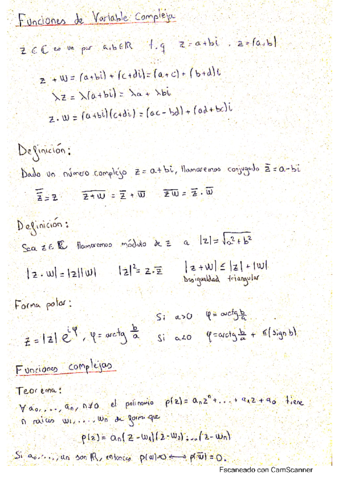 Funciones de Variable Compleja
z ∈ ℂ es un par a,b∈ℝ t.q z = a+bi . z = (a,b)
z + w = (a+bi) + (c+di) = (a+c) + (b+d)i
λz = λ(a+bi) = λa + λbi
z·w = (a+bi)(c+di) = (ac - bd) + (ad+bc)i
Definición:
Dado un número complejo z = a+bi, llamaremos conjugado z̅ = a-bi
z̿ = z   \overline{z+w} = z̅ + w̅   \overline{zw} = z̅ · w̅
Definición:
Sea z∈ℂ llamaremos módulo de z a |z| = √(a²+b²)
|z·w| = |z||w|   |z|² = z·z̅   |z+w| ≤ |z|+|w|
Desigualdad triangular
Forma polar:
Si a>0 φ = arctg b/a
z = |z| e^{iφ}, φ = arctg b/a
Si a<0 φ = arctg b/a + (sign b)
Funciones complejas
Teorema:
∀ a₀,..., aₙ, n≠0 el polinomio p(z) = aₙzⁿ + ... + a₁z + a₀ tiene
n raíces w₁,..., wₙ de forma que
p(z) = aₙ(z-w₁)(z-w₂)...(z-wₙ)
Si a₀,..., aₙ son ℝ, entonces p(w)=0 ⟷ p(w̅)=0.
Escaneado con CamScanner